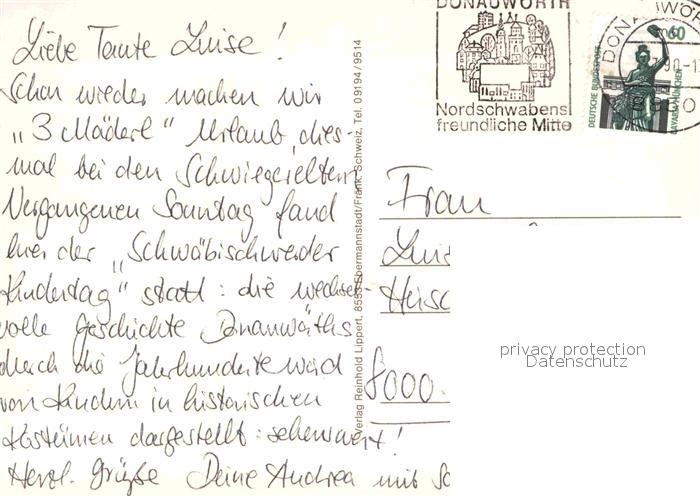 Liebe Tante Luise!
Schon wieder machen wir
„3 Mäderl" Urlaub, dies-
mal bei den Schwiegereltern
Vergangenen Sonntag fand
hier der „Schwäbischwerder
Kindertag" statt: die wechsel-
volle Geschichte Donauwörths
durch die Jahrhunderte wird
von Kindern in historischen
Kostümen dargestellt: sehenswert!
Herzl. Grüße Deine Andrea mit
Verlag Reinhold Lippert, 8553 Ebermannstadt/Fränk. Schweiz, Tel. 09194/9514
DONAUWÖRTH
Nordschwabens
freundliche Mitte
DONAUWÖR
60
DEUTSCHE BUNDESPOST
BAVARIA MÜNCHEN
Frau
Luis
8000
privacy protection
Datenschutz